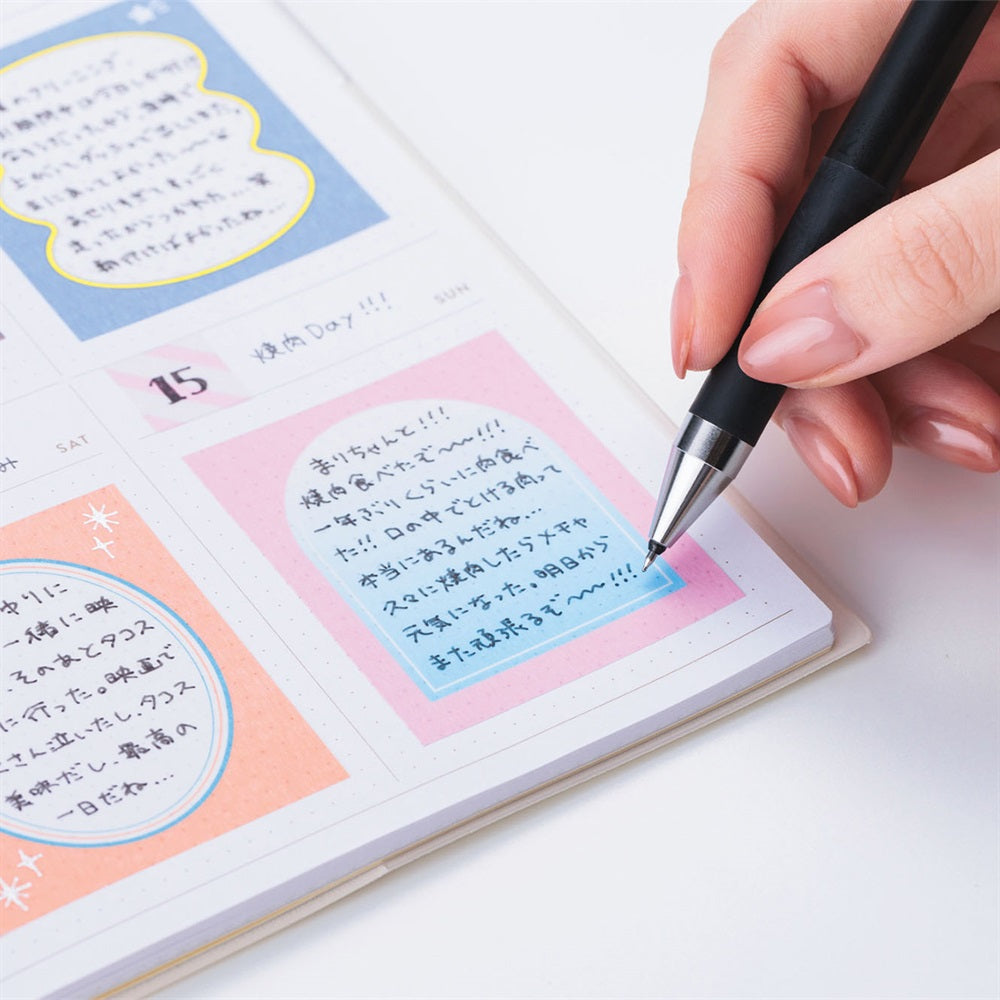 のクリーニング、
よかった〜〜
あせりすぎてもっこ
まったからつかれた...笑
SUN
15
焼肉Day!!!
まりちゃんと!!!
焼肉食べたぞ〜〜!!!
一年ぶりくらいに肉食べ
た!! 口の中でとける肉って
本当にあるんだね...
久々に焼肉したらメチャ
元気になった。明日から
また頑張るぞ〜〜!!!
み
SAT
ゆりに
一緒に映
そのあとタコス
に行った。映画で
さん泣いたし、タコス
美味だし、最高の
一日だね...